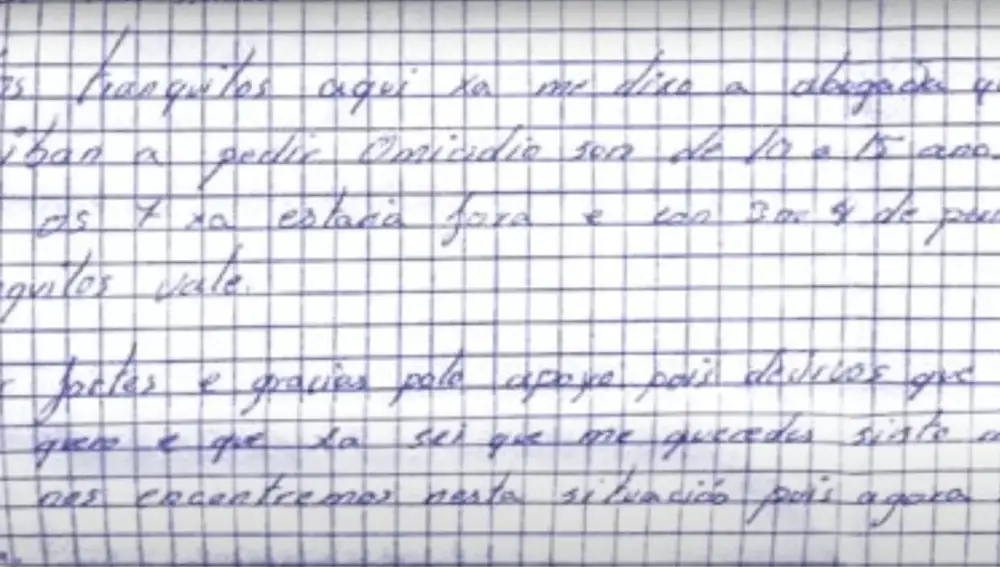 tranquilos aqui xa me dixo a abogada
iban a pedir Omicidio son de 10 a 15 ano
os 7 xa estaria fora e con 3 de
quilos vale.
fortes e gracias polo apoyo pois deciros que
quero e que xa sei que me queredes sinto
nos encontremos nesta situación pois agora